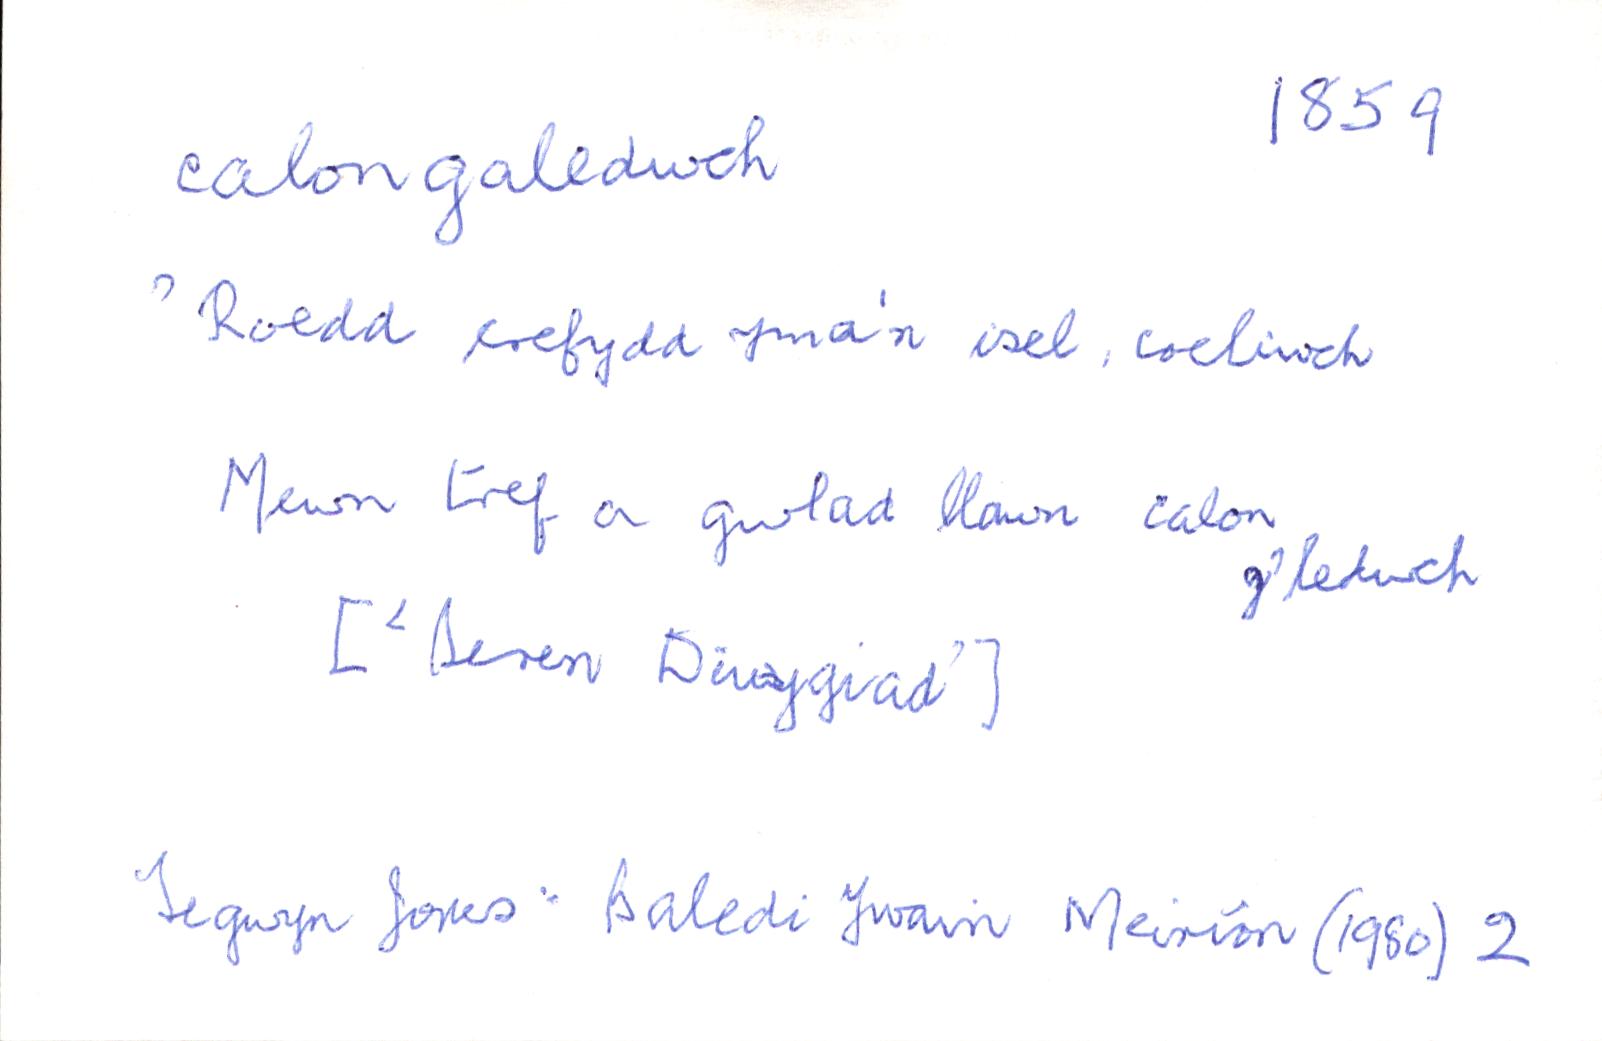 1859
calongaledwch
'Roedd crefydd yma'n isel, coeliwch
Mewn tref a gwlad llawn calon
g'ledwch
['Seren Diwygiad']
Tegwyn Jones: Baledi Ywain Meirion (1980) 2